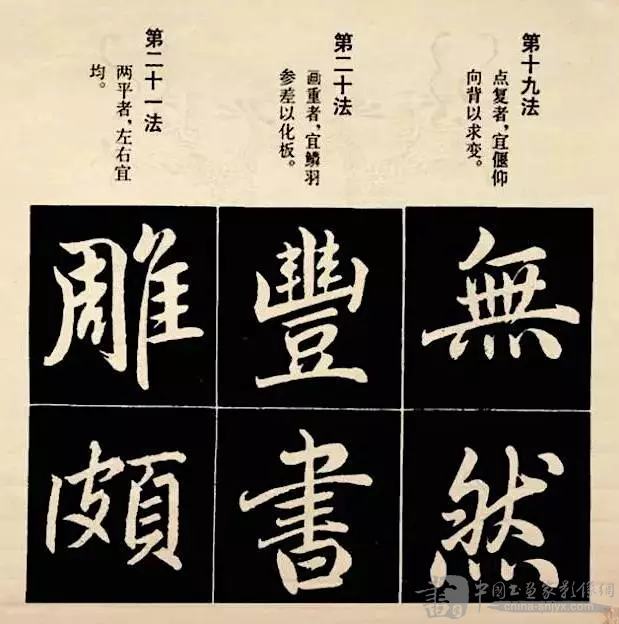 第十九法
点复者，宜偃仰
向背以求变。
無
然
第二十法
画重者，宜鳞羽
参差以化板。
豐
書
第二十一法
两平者，左右宜
均。
雕
頗
中国书画家影像網
china-snjyx.com